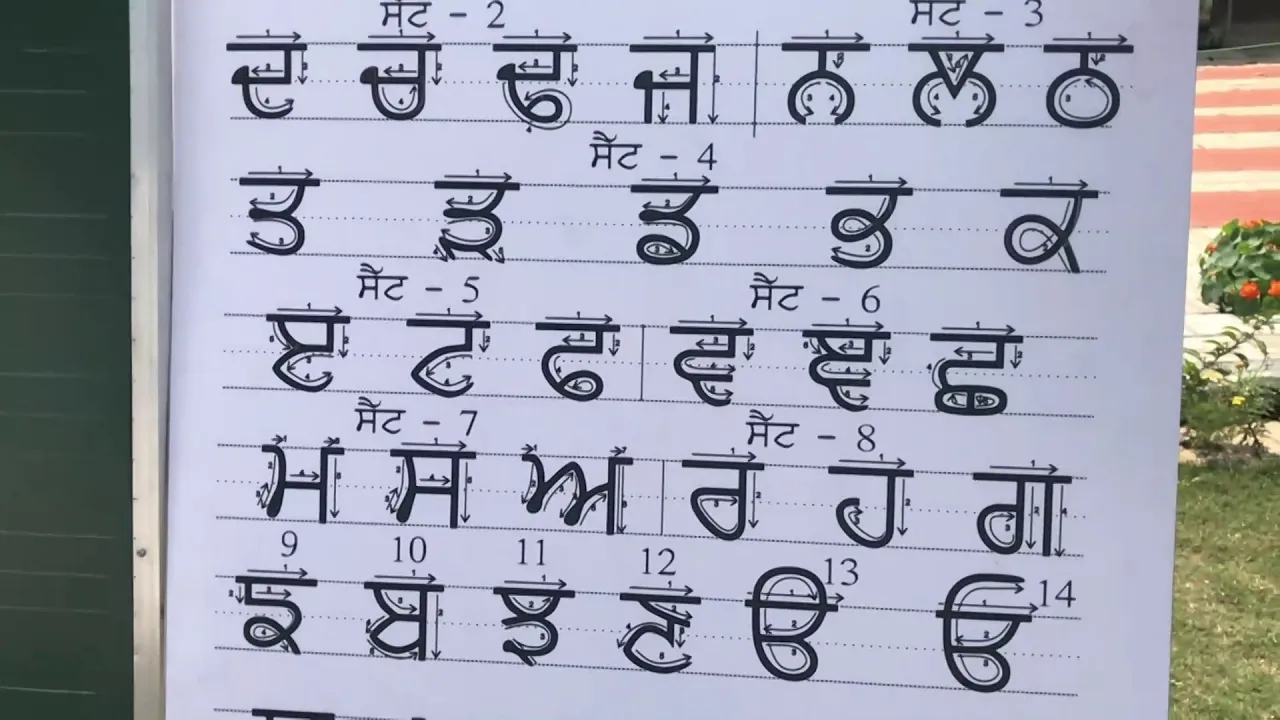 ਸੈੱਟ - 2 ਸੈੱਟ - 3
ਦ ਚ ਢ ਜ ਨ ਲ ਠ
ਸੈੱਟ - 4
ਤ ੜ ਡ ਭ ਕ
ਸੈੱਟ - 5 ਸੈੱਟ - 6
ੲ ਟ ਫ ਵ ਞ ਛ
ਸੈੱਟ - 7 ਸੈੱਟ - 8
ਮ ਸ ਅ ਰ ਹ ਗ
9 10 11 12 13 14
ਝ ਬ ਙ ਣ ੳ ਓ